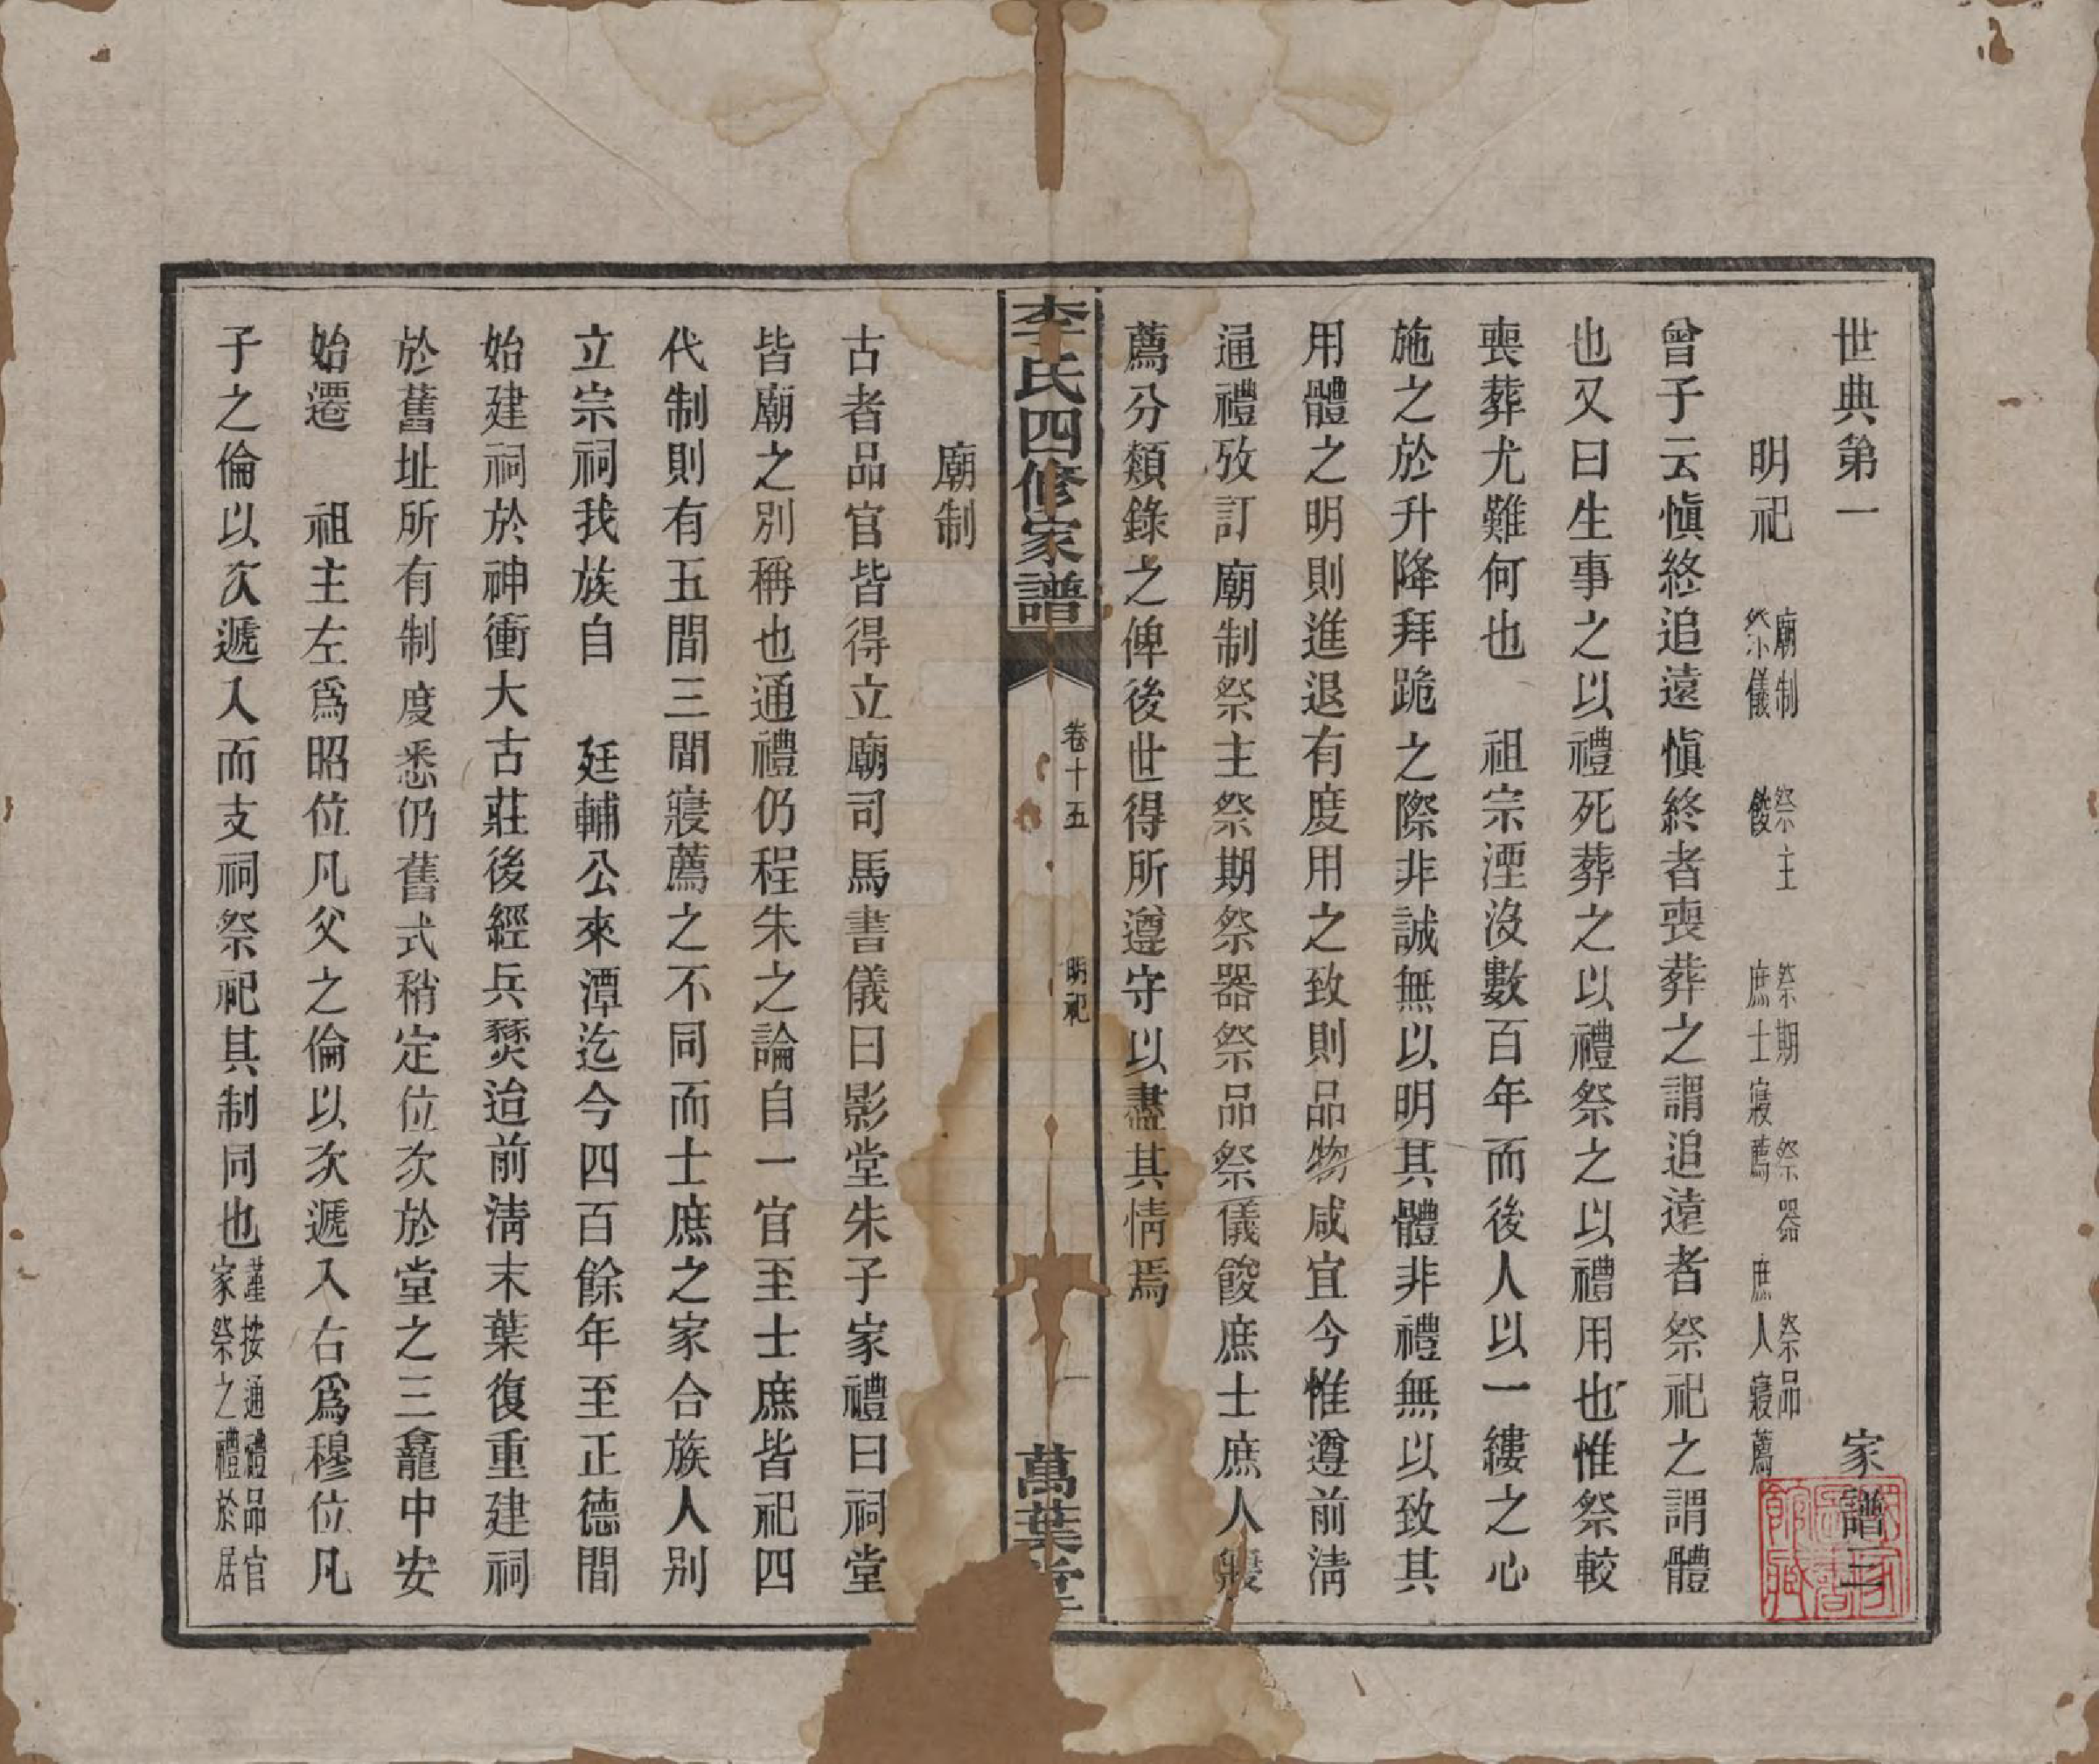 世典第一　家譜二
明祀　廟制　祭主　祭期　祭器　祭品
祭儀　餕　庶士寢薦　庶人寢薦
曾子云愼終追遠愼終者喪葬之謂追遠者祭祀之謂體
也又曰生事之以禮死葬之以禮祭之以禮用也惟祭較
喪葬尤難何也　祖宗湮沒數百年而後人以一縷之心
施之於升降拜跪之際非誠無以明其體非禮無以致其
用體之明則進退有度用之致則品物咸宜今惟遵前淸
通禮攷訂廟制祭主祭期祭器祭品祭儀餕庶士庶人寢
薦分類錄之俾後世得所遵守以盡其情焉
李氏四修家譜
卷十五　明祀　一
萬葉堂
廟制
古者品官皆得立廟司馬書儀曰影堂朱子家禮曰祠堂
皆廟之別稱也通禮仍程朱之論自一官至士庶皆祀四
代制則有五間三間寢薦之不同而士庶之家合族人別
立宗祠我族自　廷輔公來潭迄今四百餘年至正德間
始建祠於神衝大古莊後經兵燹迨前淸末葉復重建祠
於舊址所有制度悉仍舊式稍定位次於堂之三龕中安
始遷　祖主左爲昭位凡父之倫以次遞入右爲穆位凡
子之倫以次遞入而支祠祭祀其制同也謹按通禮品官
家祭之禮於居
國家圖書館藏